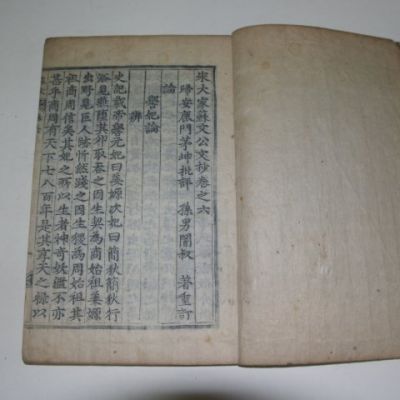 宋大家蘇文公文抄卷之六
歸安鹿門茅坤批評 孫男闇叔 著重訂
論
嚳妃論
辨
史記載帝嚳元妃曰姜嫄次妃曰簡狄簡狄行
浴見燕墮其卵取吞之因生契爲商始祖姜嫄
出野見巨人跡忻然踐之因生稷爲周始祖其
祖商周信矣其妃之所以生者神奇妖濫不亦
甚乎商周有天下七八百年是其享天之祿以